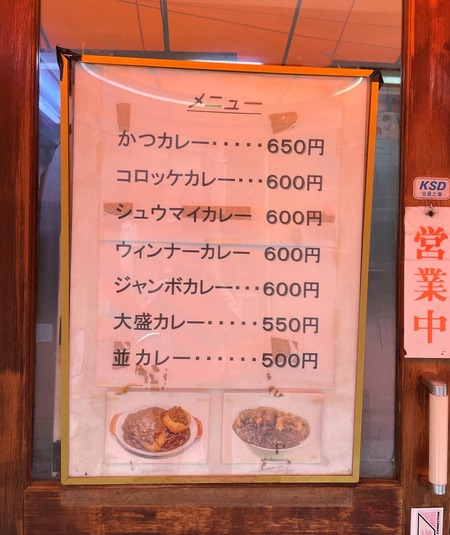 メニュー
かつカレー・・・・・650円
コロッケカレー・・・600円
シュウマイカレー 600円
ウィンナーカレー 600円
ジャンボカレー・・・600円
大盛カレー・・・・・550円
並カレー・・・・・・500円
KSD
会員之章
営業中